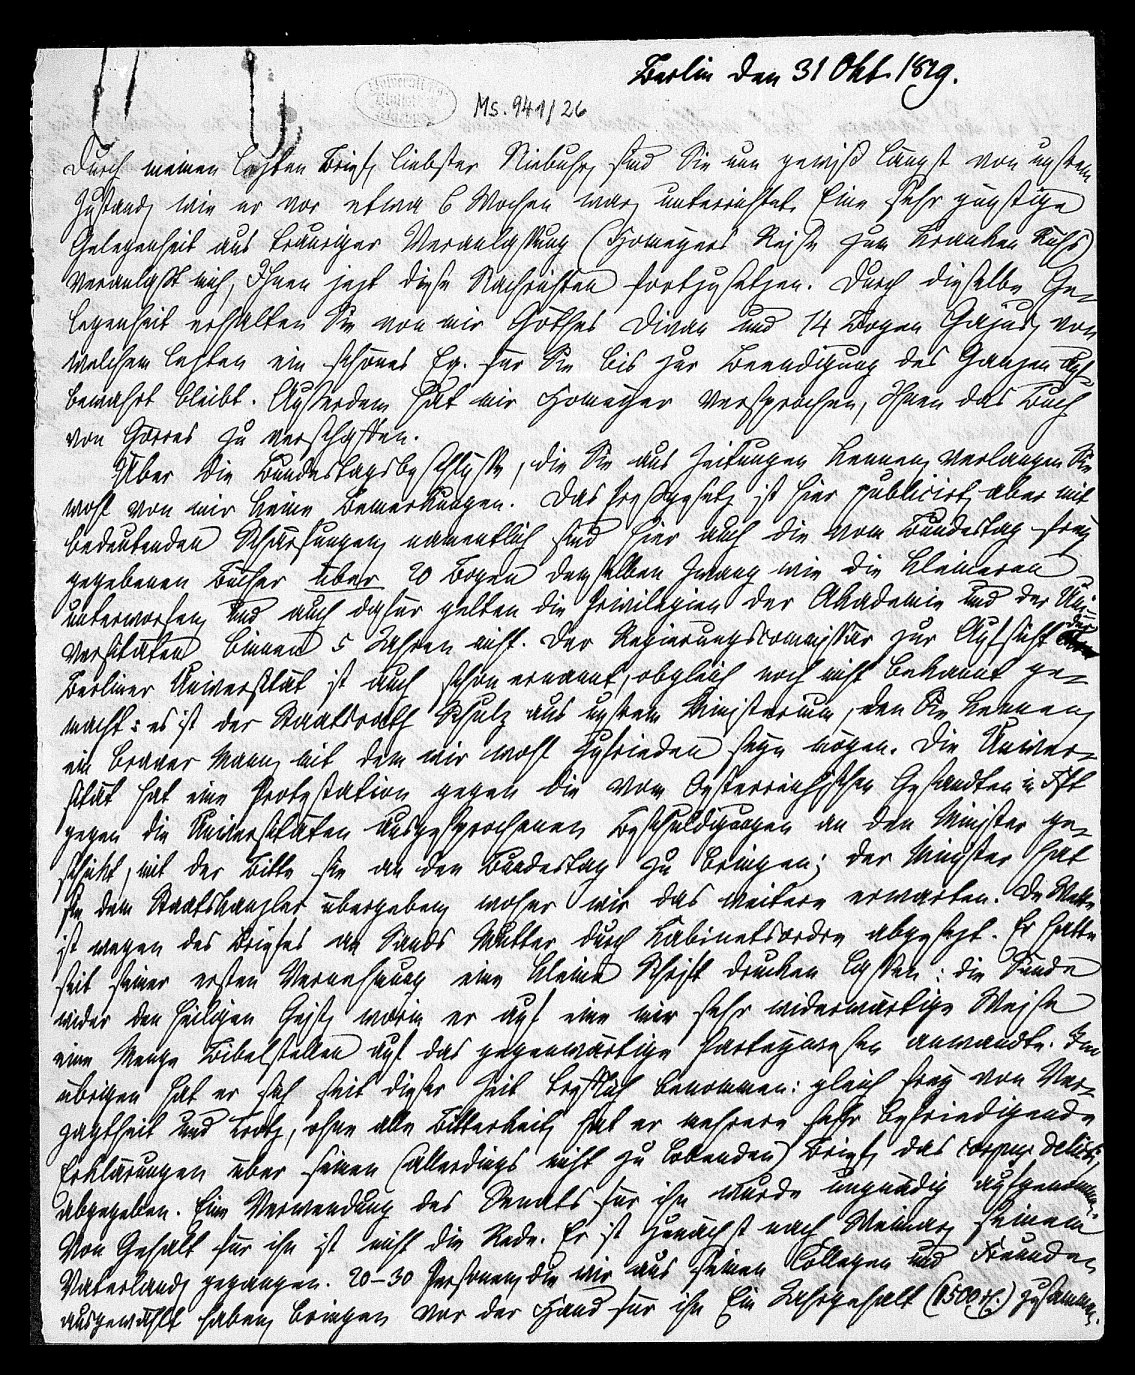 Berlin den 31 Okt. 1819.
Ms. 941/26
Durch meinen letzten Brief, liebster Niebuhr, sind Sie nun gewiß längst von unsrem
Zustand, wie er vor etwa 6 Wochen war, unterrichtet. Eine sehr günstige
Gelegenheit aus trauriger Veranlassung (Homeyers Reise zum kranken Rühs)
veranlaßt mich, Ihnen jezt diese Nachrichten fortzusetzen. Durch dieselbe Ge-
legenheit erhalten Sie von mir Göthes Divan und 14 Bogen Gajus, von
welchem lezten ein schönes Ex. für Sie bis zur Beendigung des Ganzen auf-
bewahrt bleibt. Außerdem hat mir Homeyer versprochen, Ihnen das Buch
von Görres zu verschaffen.
Über die Bundestagsbeschlüsse, die Sie aus Zeitungen kennen, verlangen Sie
wohl von mir keine Bemerkungen. Das Preßgesetz ist hier publicirt, aber mit
bedeutenden Schärfungen, namentlich sind hier auch die vom Bundestag frey
gegebenen Bücher über 20 Bogen demselben Zwang wie die kleineren
unterworfen, und auch dafür gelten die Privilegien der Akademie und der Uni-
versitäten binnen 5 Jahren nicht. Der Regierungscommissär zur Aufsicht der
Berliner Universität ist auch schon ernannt, obgleich noch nicht bekannt ge-
macht: es ist der Staatsrath Schulz aus unsrem Ministerium, den Sie kennen,
ein braver Mann, mit dem wir wohl zufrieden seyn mögen. Die Univer-
sität hat eine Protestation gegen die vom Oesterreichischen Gesandten in Fft
gegen die Universitäten ausgesprochenen Beschuldigungen an den Minister ge-
schickt, mit der Bitte sie an den Bundestag zu bringen; der Minister hat
sie dem Staatskanzler übergeben, woher wir das weitere erwarten. De Wette
ist wegen des Briefes an Sands Mutter durch Kabinetsordre abgesezt. Er hatte
seit seiner ersten Vernehmung eine kleine Schrift drucken lassen: die Sünde
wider den heiligen Geist, worin er auf eine mir sehr widerwärtige Weise
eine Menge Bibelstellen auf das gegenwärtige Parteywesen anwandte. Im
übrigen hat er sich seit dieser Zeit trefflich benommen: gleich frey von Ver-
zagtheit und Trotz, ohne alle Bitterkeit, hat er mehrere sehr befriedigende
Erklärungen über seinen (allerdings nicht zu lobenden) Brief, das corpus delicti,
abgegeben. Eine Verwendung des Senats für ihn wurde ungnädig aufgenommen.
Von Gehalt für ihn ist nicht die Rede. Er ist zunächst nach Weimar, seinem
Vaterland, gegangen. 20–30 Personen, die wir aus seinen Collegen und Freunden
ausgewählt haben, bringen vor der Hand für ihn Ein Jahrgehalt (1500 rt.) zusammen.